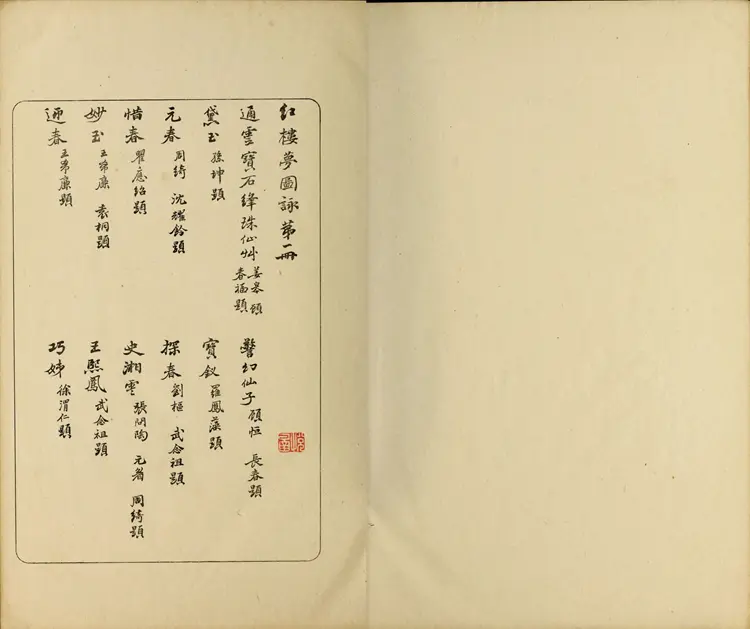 紅樓夢圖詠第一冊
通靈寶石絳珠仙艸 姜皋 顧春福題 警幻仙子 顧恒 長春題
黛玉 孫坤題 寶釵 羅鳳藻題
元春 周綺 沈燿題 探春 劉樞 武念祖題
惜春 瞿應紹題 史湘雲 張問陶 周綺題
妙玉 王希廉 袁桐題 王熙鳳 武念祖題
迎春 王希廉題 巧姊 徐渭仁題